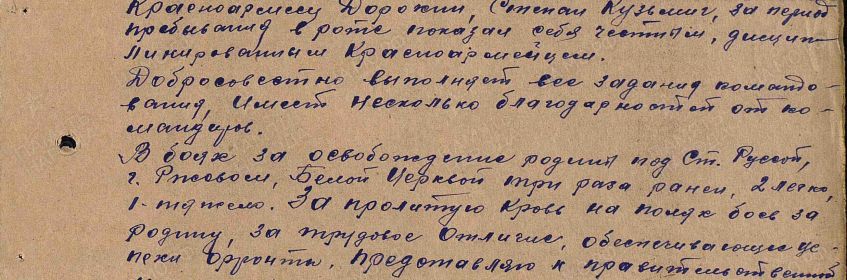 Красноармеец Дорожкин, Степан Кузьмич, за период
пребывания в роте показал себя честным, дисцип-
линированным красноармейцем.
Добросовестно выполняет все задания командо-
вания, имеет несколько благодарностей от ко-
мандиров.
В боях за освобождение родины под Ст. Руссой,
г. Ржовом, Белой Церквой три раза ранен, 2 легко,
1-тяжело. За пролитую кровь на полях боев за
родину, за трудовое отличие, обеспечивающие ус-
пехи фронта, представляю к правительственной